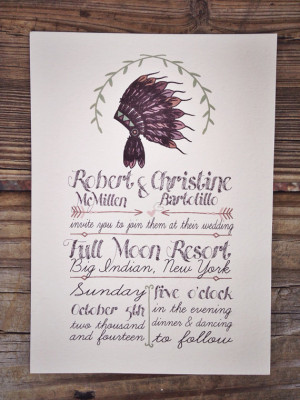 Robert & Christine
McMillen Bartolillo
invite you to join them at their wedding
Full Moon Resort
Big Indian, New York
Sunday
October 5th
two thousand
and fourteen
five o'clock
in the evening
dinner & dancing
to follow